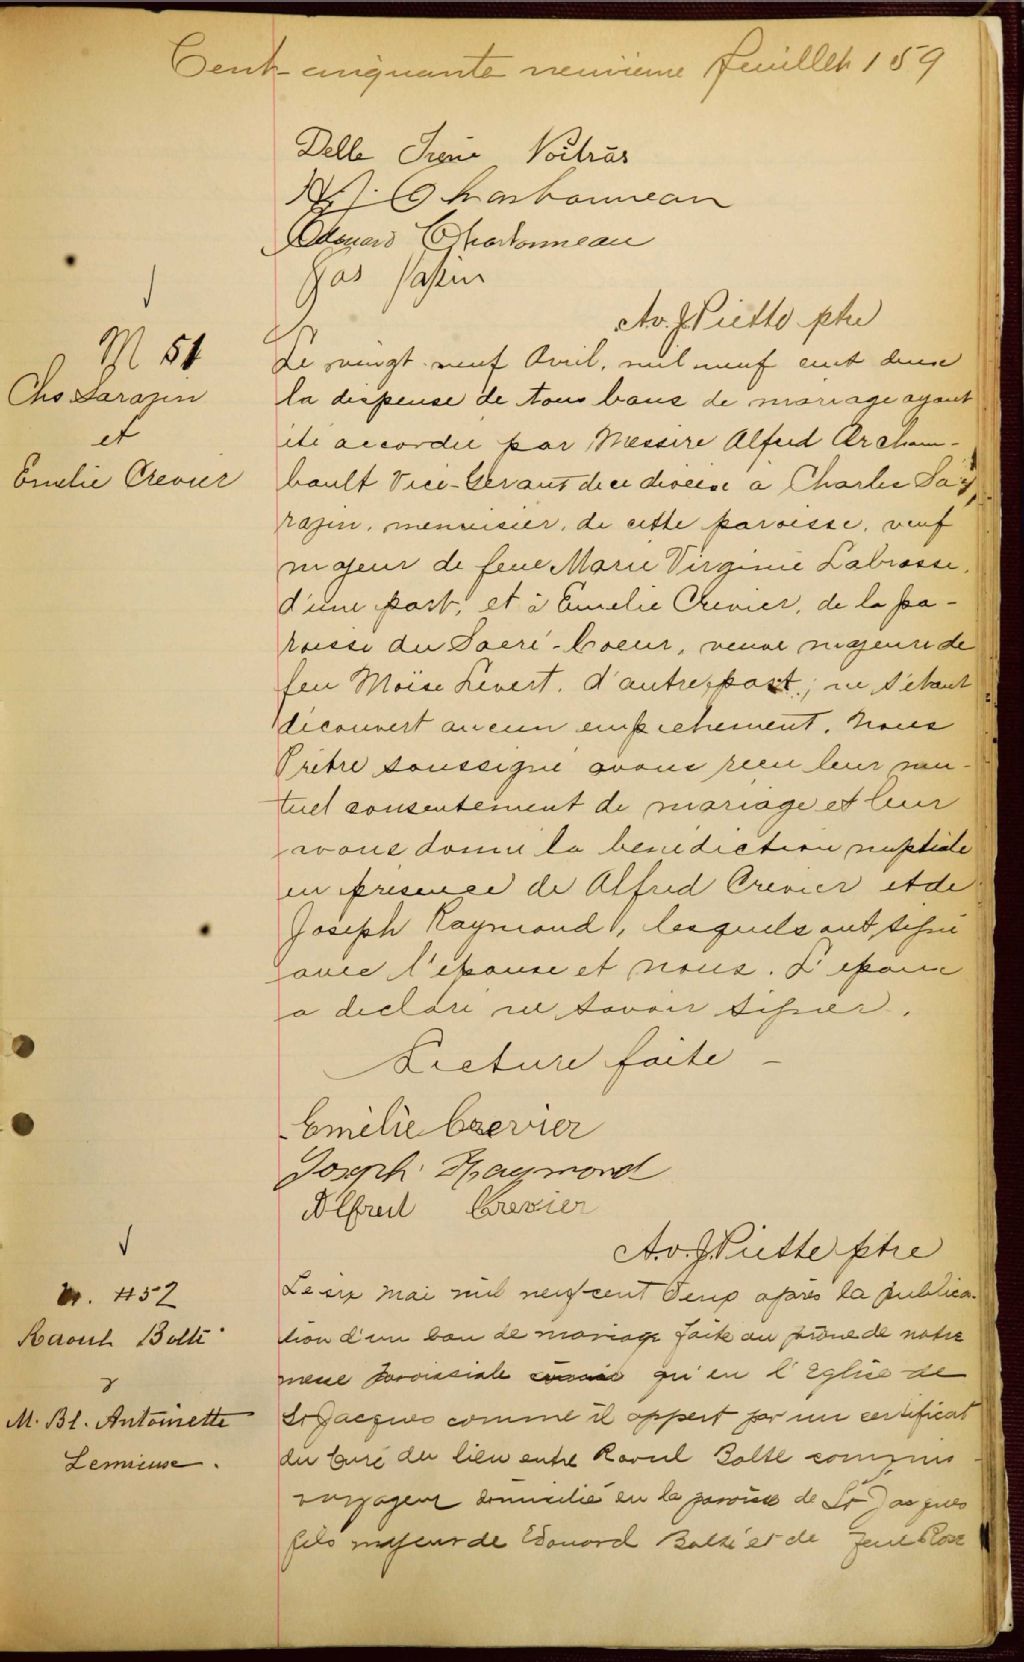 Cent-cinquante neuvieme feuillet 159
Delle Irène Poitras
H. J. Charbonneau
Edouard Charbonneau
Jos Papin
Av. J. Piette ptre
M 51
Chs Sarazin
et
Emelie Crevier
Le vingt-neuf Avril, mil neuf cent douze
la dispense de tous bans de mariage ayant
été accordée par Messire Alfred Archam-
bault Vice-Gérant de ce diocèse à Charles Sa-
razin, menuisier, de cette paroisse, veuf
majeur de feue Marie Virginie Labrosse,
d'une part, et à Emelie Crevier, de la pa-
roisse du Sacré-Coeur, veuve majeure de
feu Moïse Levert, d'autre part; ne s'étant
découvert aucun empêchement, Nous
Prêtre soussigné avons reçu leur mu-
tuel consentement de mariage et leur
avons donné la bénédiction nuptiale
en présence de Alfred Crevier et de
Joseph Raymond, lesquels ont signé
avec l'épouse et nous. L'époux
a déclaré ne savoir signer.
Lecture faite –
Emélie Crevier
Joseph Raymond
Alfred Crevier
Av. J. Piette ptre
M. #52
Raoul Bolté
&
M. Bl. Antoinette
Lemieuse.
Le six Mai mil neuf cent douze après la publica-
tion d'un ban de mariage faite au prône de notre
messe paroissiale qu'en l'Eglise de
St Jacques comme il appert par un certificat
du Curé du lieu entre Raoul Bolté commis
voyageur domicilié en la paroisse de St Jacques
fils majeur de Edouard Bolté et de feue Rose